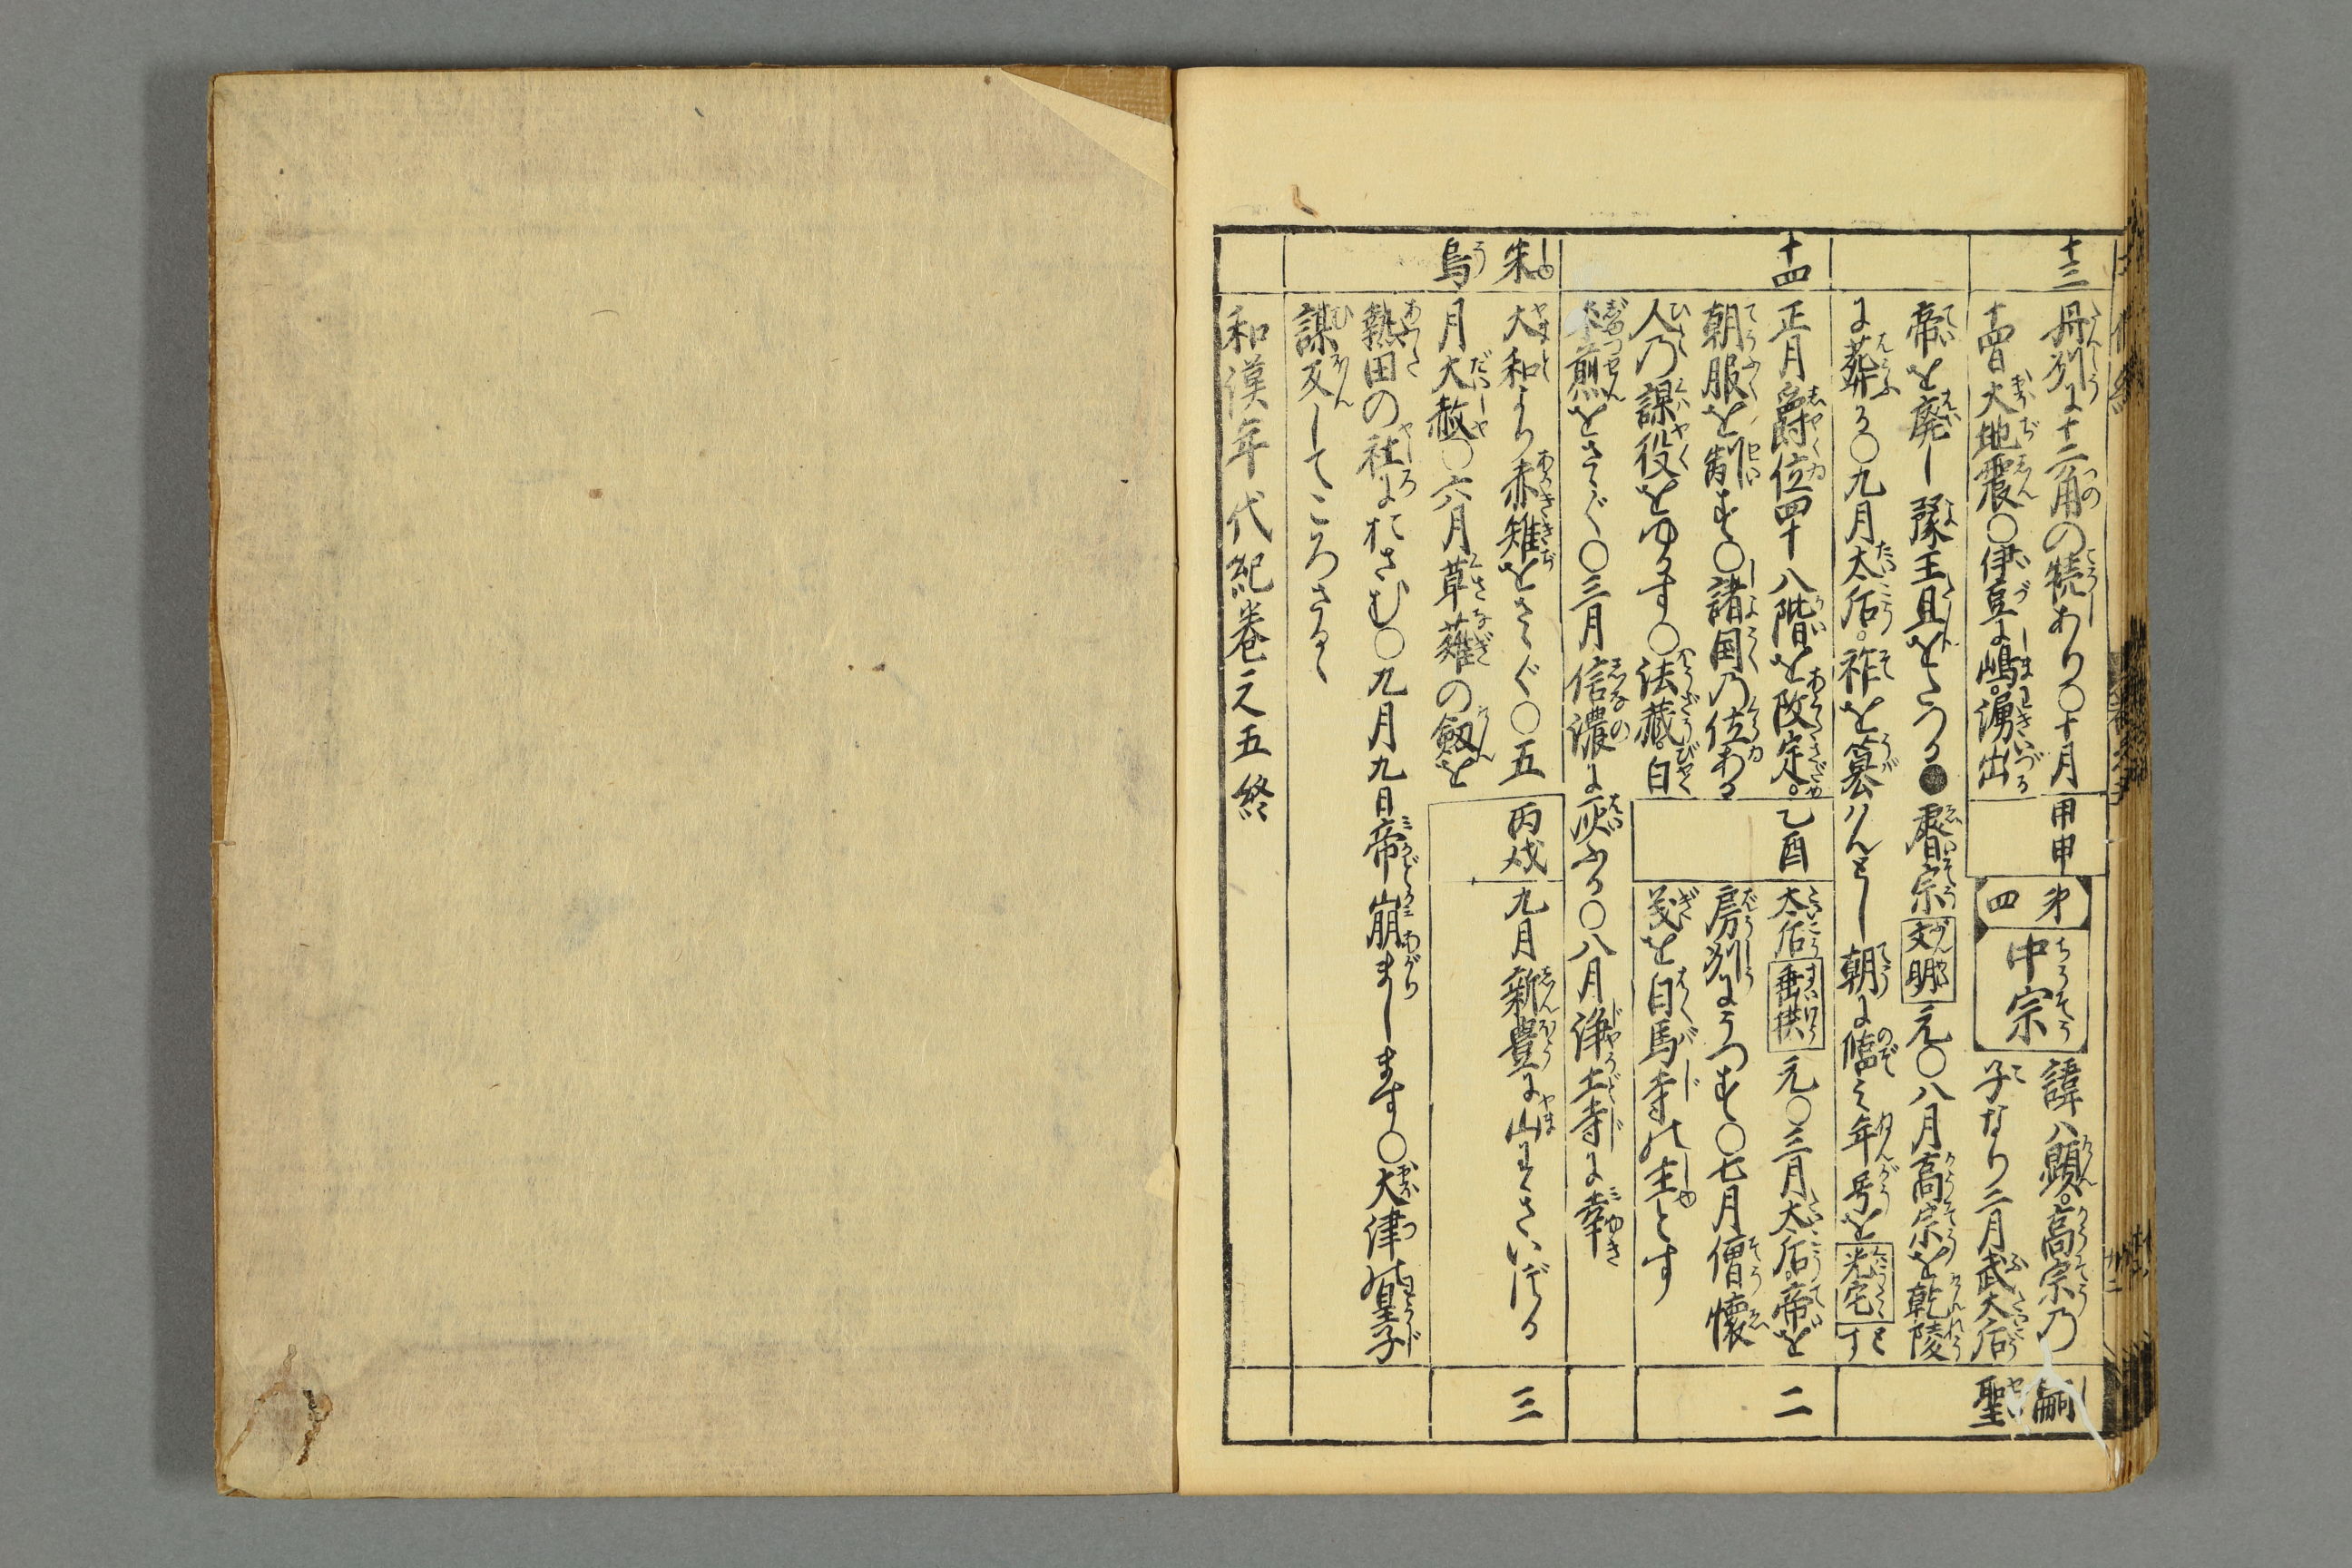 十三
丹列に十二角の犢あり〇十月
十四日大地震〇伊豆に嶋湧出る
甲申
第四
中宗
諱ハ顕高宗乃
子なり二月武太后
嗣
聖
帝を廃し豫王旦をたつる●睿宗文明元〇八月高宗を乾陵
に葬る〇九月太后祚を簒はんとし朝に臨ミ年号を光宅とす
十四
正月爵位四十八階を改定
朝服を制す〇諸国乃位ある
人乃課役をゆるす〇法蔵白
朮煎をさゝぐ〇三月信濃に灰ふる〇八月浄土寺に幸
乙酉
太后垂拱元〇三月太后帝を
房列にうつす〇七月僧懐
義を白馬寺の主とす
二
朱
烏
大和より赤雉をさゝぐ〇五
月大赦〇六月草薙の剱を
熱田の社におさむ〇九月九日帝崩まします〇大津の皇子
謀反してころさるゝ
丙戌
九月新豊に山わきいづる
三
和漢年代紀巻之五終